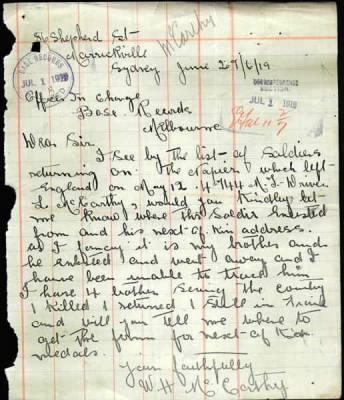 56 Shepherd St
Marrickville
Sydney June 27/6/19
McCarthy
BASE RECORDS
JUL 1 1919
CORRESPONDENCE
SECTION
JUL 1 1919
Officer In Charge
Base Records
Melbourne
Dear Sir
I see by the list of Soldiers
returning on the Napier which left
England on May 12. 4744 M.T. Driver
J McCarthy, would you kindly let
me know where this Soldier Enlisted
from and his next-of-kin address.
as I fancy it is my brother and
he enlisted and went away and I
have been unable to trace him
I have 4 brother serving the country
1 killed 1 returned 1 still in France
and will you tell me where to
get the form for next-of Kin
medals.
Yours faithfully
W H McCarthy